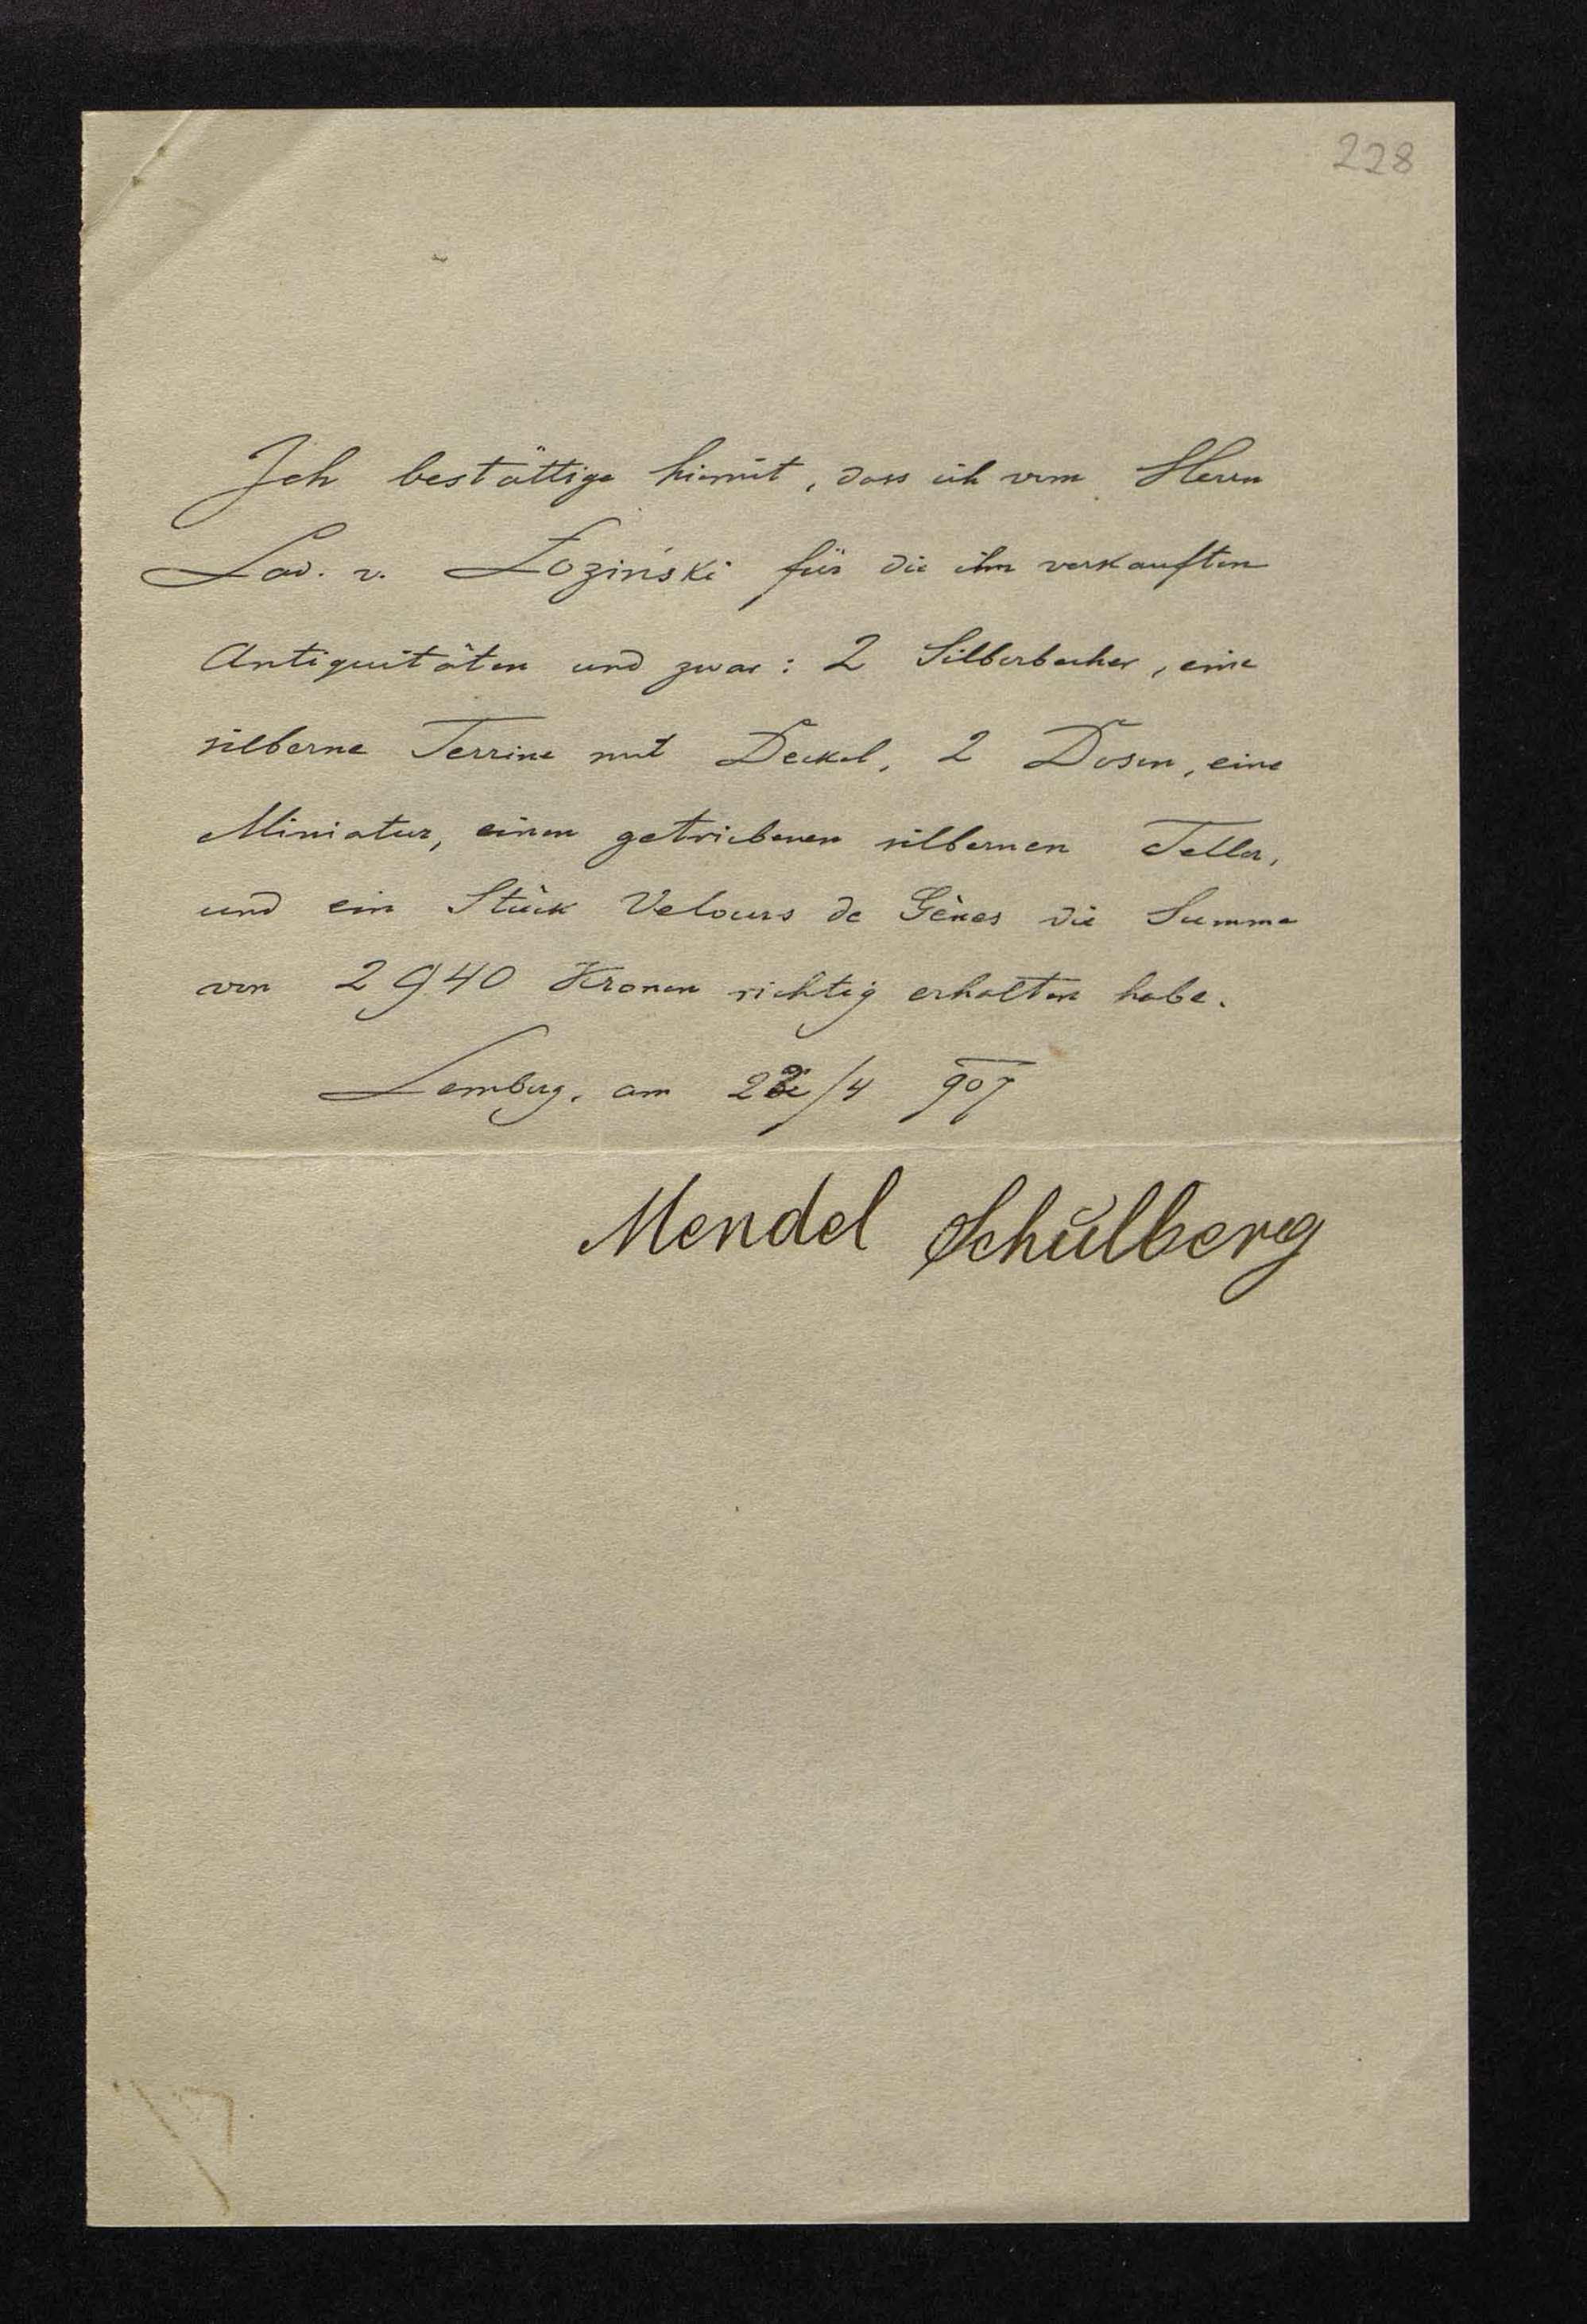 228
Ich bestättige hiemit, dass ich vom Herrn
Lad. v. Łoziński für die ihm verkauften
Antiquitäten und zwar: 2 Silberbecher, eine
silberne Terrine mit Deckel, 2 Dosen, eine
Miniatur, einen getriebenen silbernen Teller,
und ein Stück Velours de Gènes die Summe
von 2940 Kronen richtig erhalten habe.
Lemberg, am /4 907
Mendel Schŭlberg